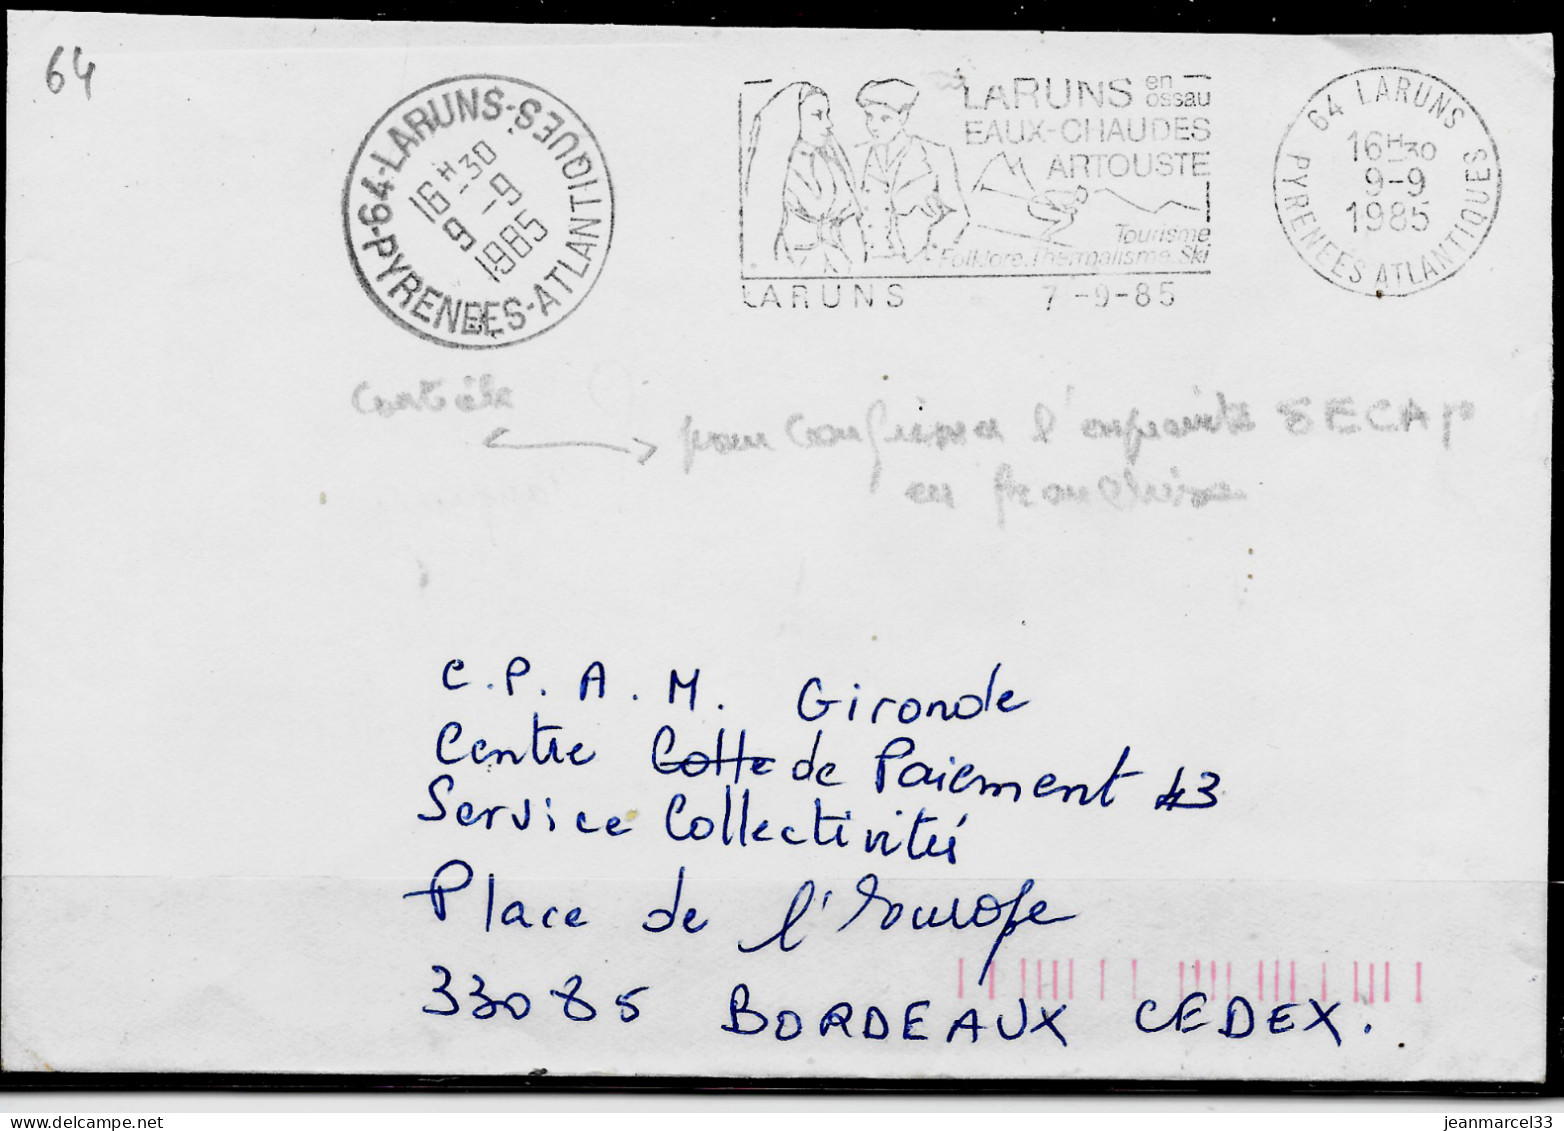 64
64-LARUNS-
16H30
9-9
1985
PYRENEES-ATLANTIQUES-
LARUNS en ossau
EAUX-CHAUDES
ARTOUSTE
Tourisme
Folklore.Thermalisme.Ski
LARUNS 7-9-85
64 LARUNS
16H30
9-9
1985
PYRENEES ATLANTIQUES
Contrôle
pour confirmer l'empreinte SECAP
en franchise
C.P.A.M. Gironde
Centre Colle de Paiement 43
Service Collectivités
Place de l'Europe
33085 BORDEAUX CEDEX.
jeanmarcel33